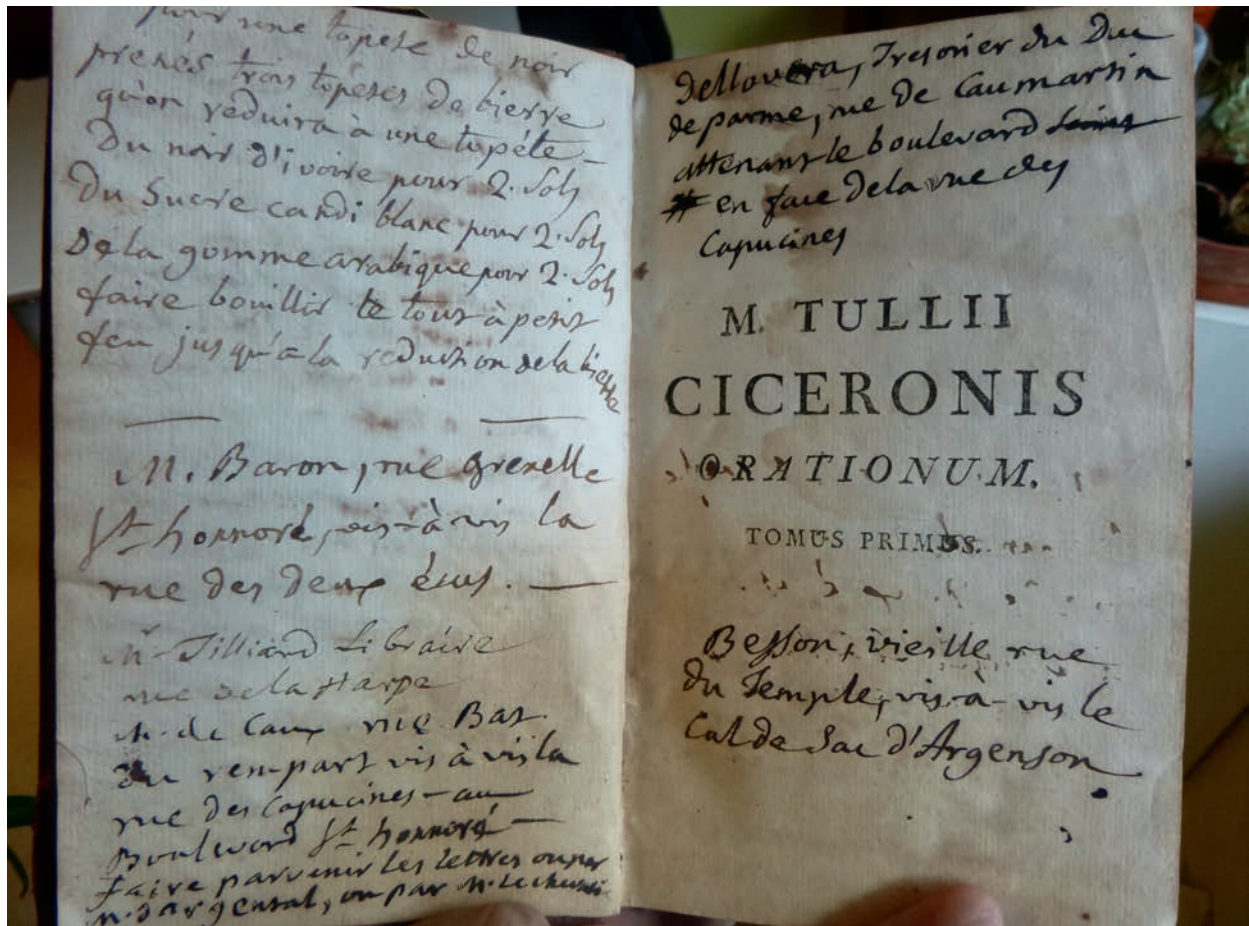 pour une topete de noir
prenés trois topetes de bierre
qu'on reduira à une topéte –
Du noir d'ivoire pour 2. Sols
Du Sucre candi blanc pour 2. Sols
De la gomme arabique pour 2. Sols
faire bouillir le tout à petit
feu jusqu'a la reduction de la bierre
M. Baron, rue grenelle
St honnoré, vis-à-vis la
rue des deux écus. —
Mr Tilliard Libraire
rue de la Harpe
M. de Caux rue Bas
du rempart vis à vis la
rue des Capucines – au
Boulward St honnoré —
faire parvenir les lettres ou par
M. d'argental, ou par M. le
dellovera, Tresorier du Duc
de parme, rue de Caumartin
attenant le boulevard
en face de la rue des
Capucines
M. TULLII
CICERONIS
ORATIONUM.
TOMUS PRIMUS.
Besson, vieille rue
du Temple, vis-à-vis le
Cul de Sac d'Argenson